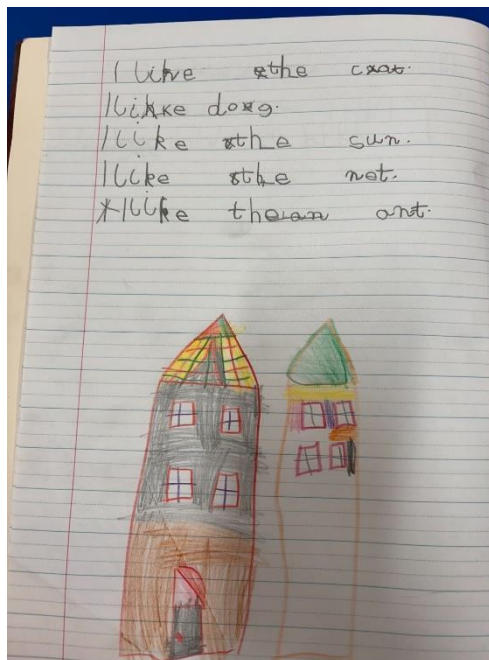 I like the cat.
I like dog.
I like the sun.
I like the net.
I like the an ant.